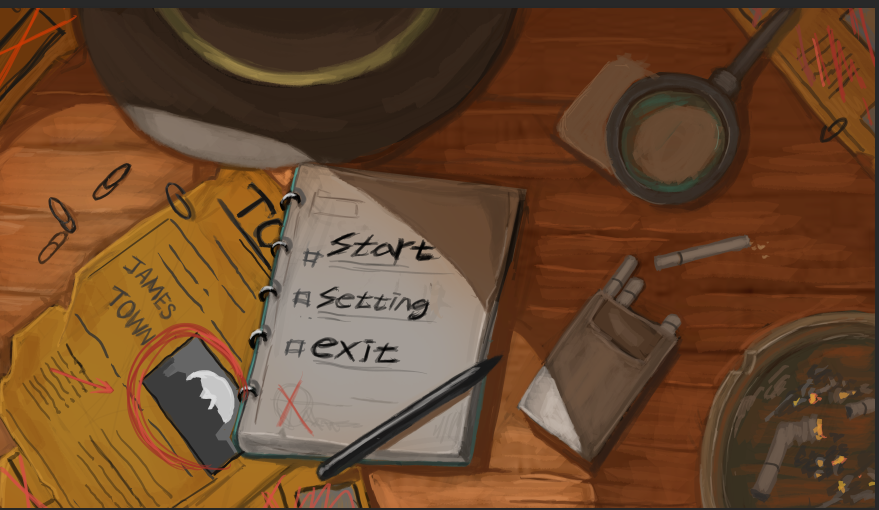 TO
JAMES
TOWN
# Start
# Setting
# exit